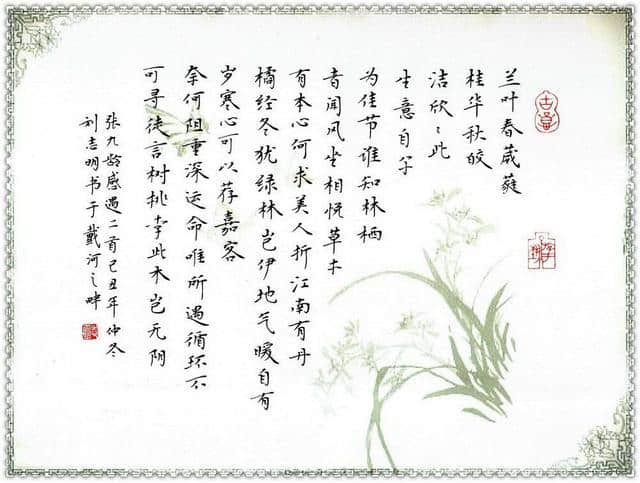 兰叶春葳蕤
桂华秋皎
洁欣〻此
生意自尔
为佳节谁知林栖
者闻风坐相悦草木
有本心何求美人折江南有丹
橘经冬犹绿林岂伊地气暖自有
岁寒心可以荐嘉客
奈何阻重深运命唯所遇循环不
可寻徒言树桃李此木岂无阴
张九龄感遇二首己丑年仲冬
刘志明书于戴河之畔
古意